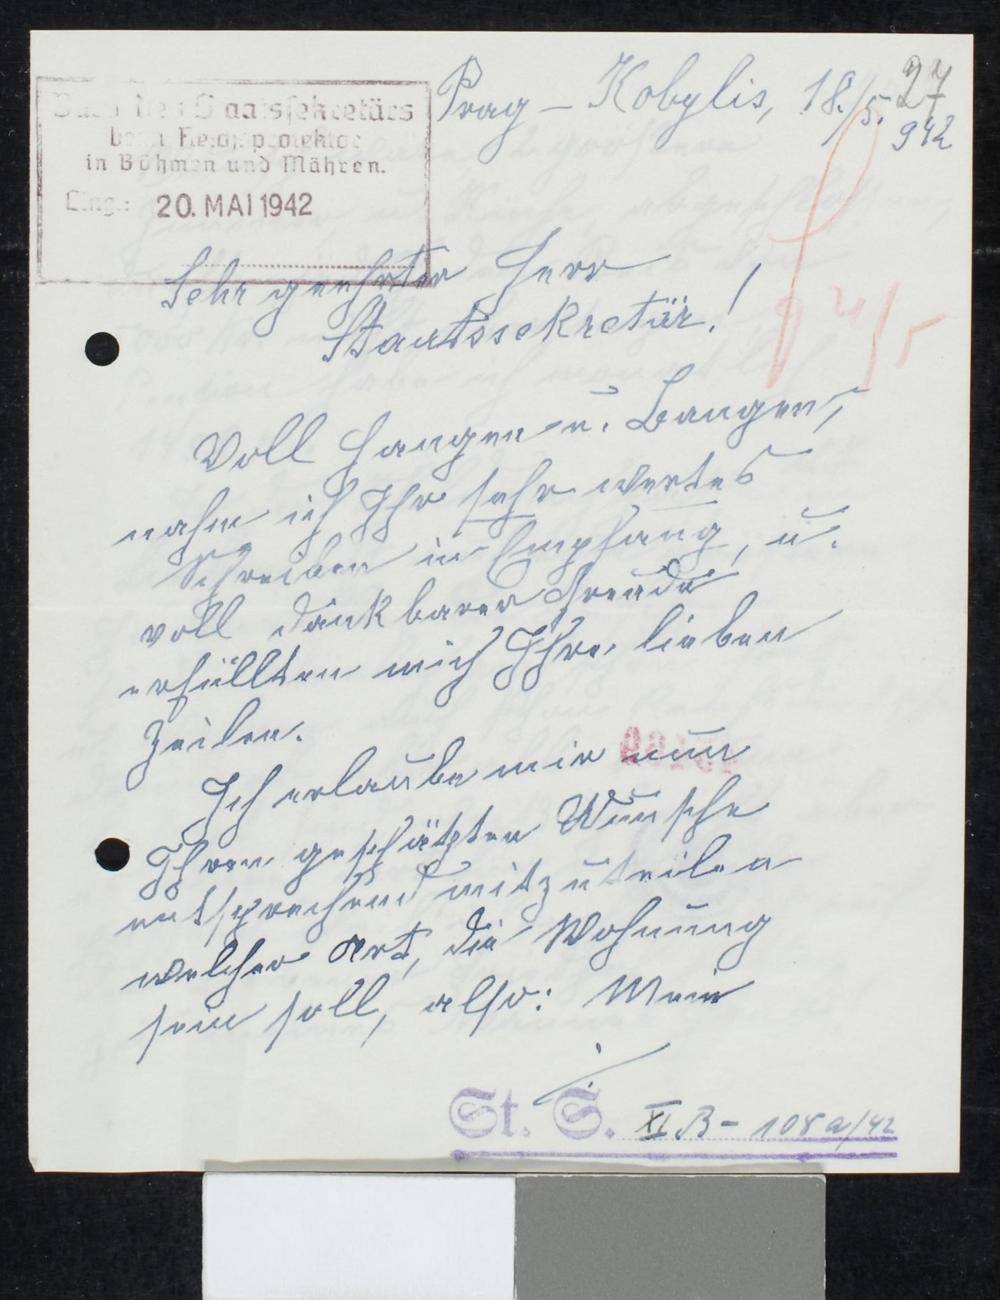 Prag – Kobylis, 18./5. 942
27
Büro des Staatssekretärs
beim Reichsprotektor
in Böhmen und Mähren.
Eing.: 20. MAI 1942
Sehr geehrter Herr
Staatssekretär!
21/5
Voll Hangen u. Bangen,
nahm ich Ihr sehr wertes
Schreiben in Empfang, u.
voll dankbarer Freude
erfüllten mich Ihre lieben
Zeilen.
Ich erlaube mir nun
Ihren geschätzten Wunsche
entsprechend mitzuteilen
welcher Art, die Wohnung
sein soll, also: Mein
St. S. XI B - 108 a/42